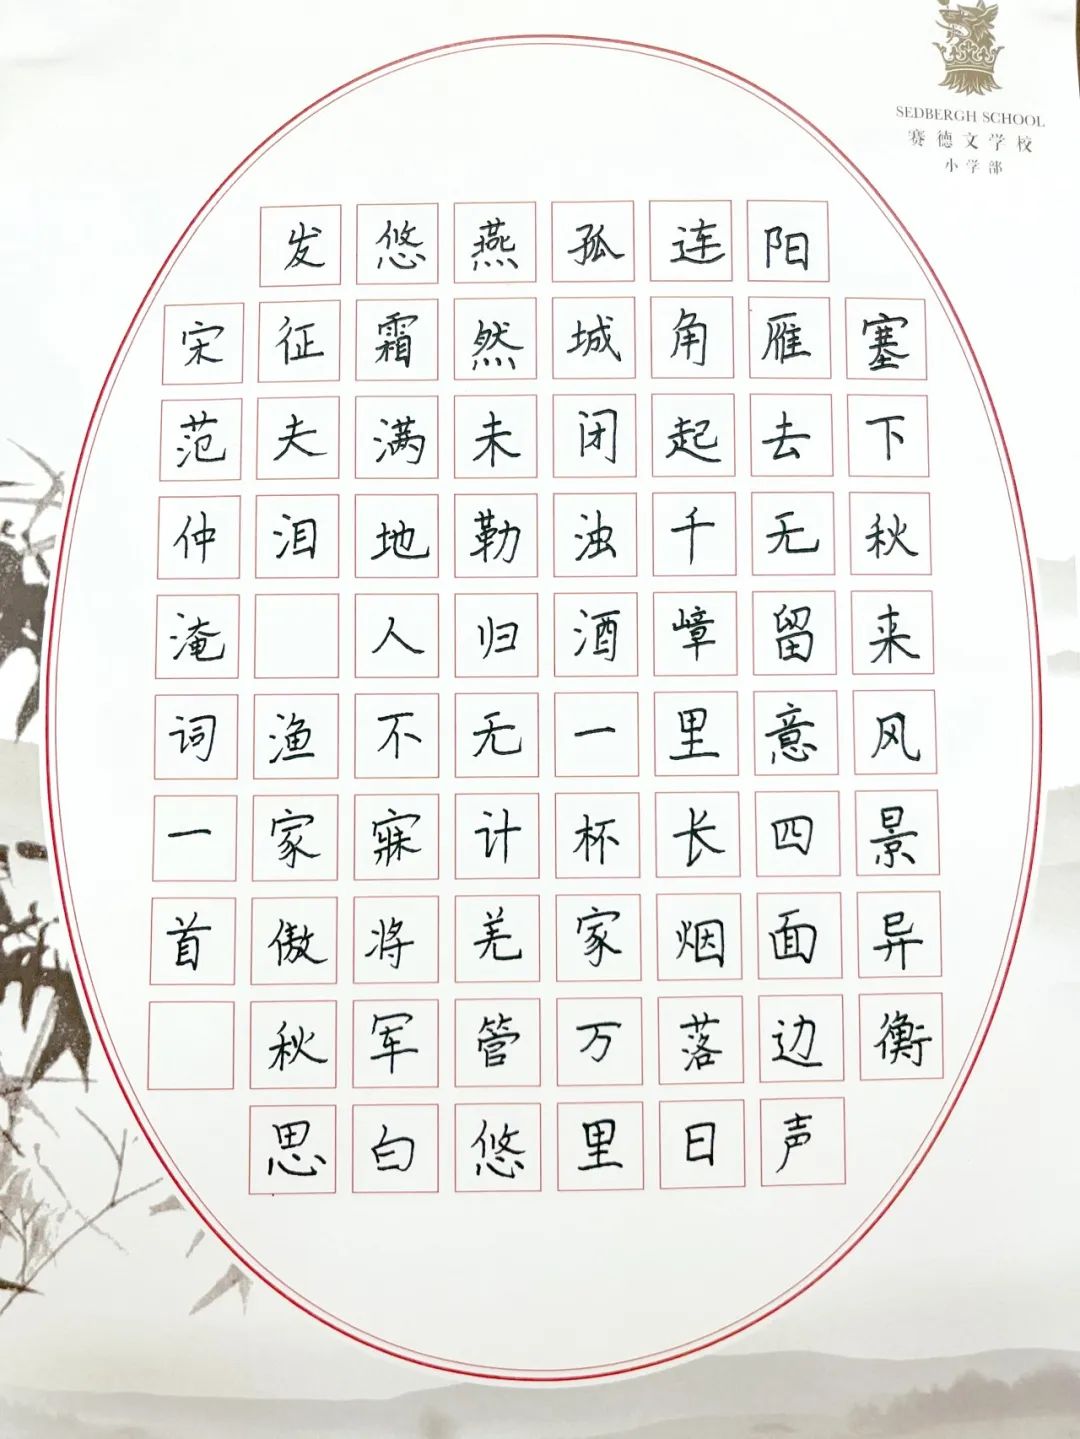 SEDBERGH SCHOOL
赛德文学校
小学部
塞下秋来风景异衡
阳雁去无留意四面边声
连角起千嶂里长烟落日
孤城闭浊酒一杯家万里
燕然未勒归无计羌管悠
悠霜满地人不寐将军白
发征夫泪 渔家傲秋思
宋范仲淹词一首